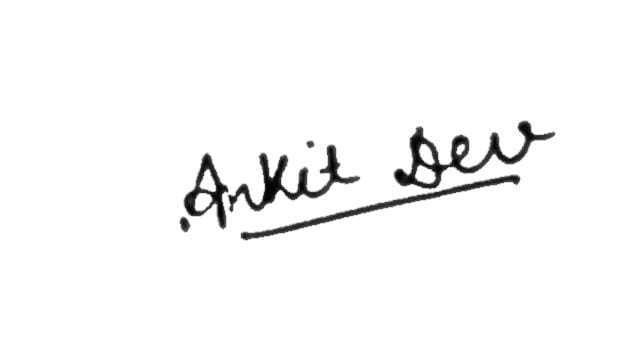 Ankit Dev